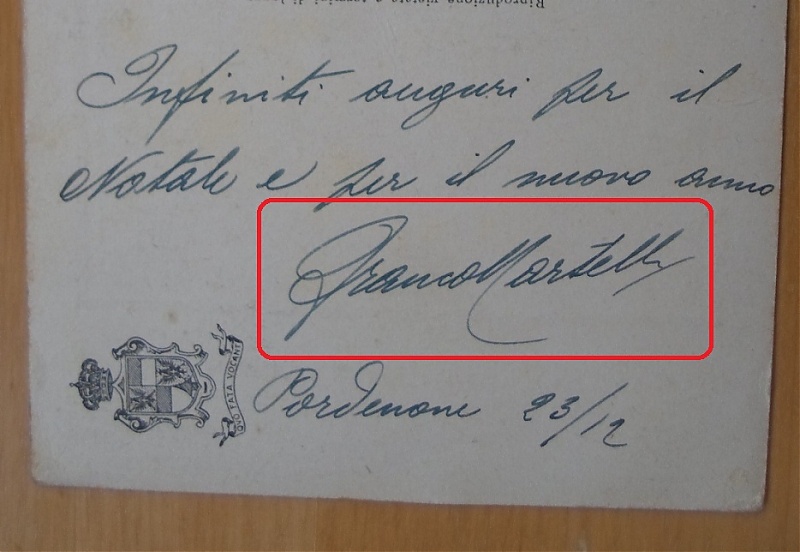 Riproduzione vietata a termini di legge
Infiniti auguri per il
Natale e per il nuovo anno
Franco Martelli
Pordenone 23/12
QUO FATA VOCANT